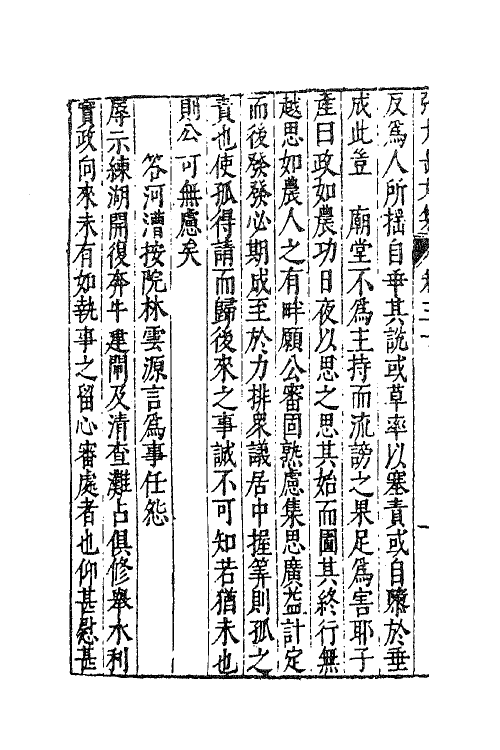 反爲人所揺自乖其説或草率以塞責或自隳於垂
成此豈　廟堂不爲主持而流謗之果足爲害耶子
產曰政如農功日夜以思之思其始而圖其終行無
越思如農人之有畔願公審固熟慮集思廣益計定
而後發發必期成至於力排衆議居中握筭則孤之
責也使孤得請而歸後來之事誠不可知若猶未也
則公可無慮矣
答河漕按院林雲源言爲事任怨
辱示練湖開復奔牛建閘及清查灘占俱修舉水利
實政向來未有如執事之留心審處者也仰甚慰甚